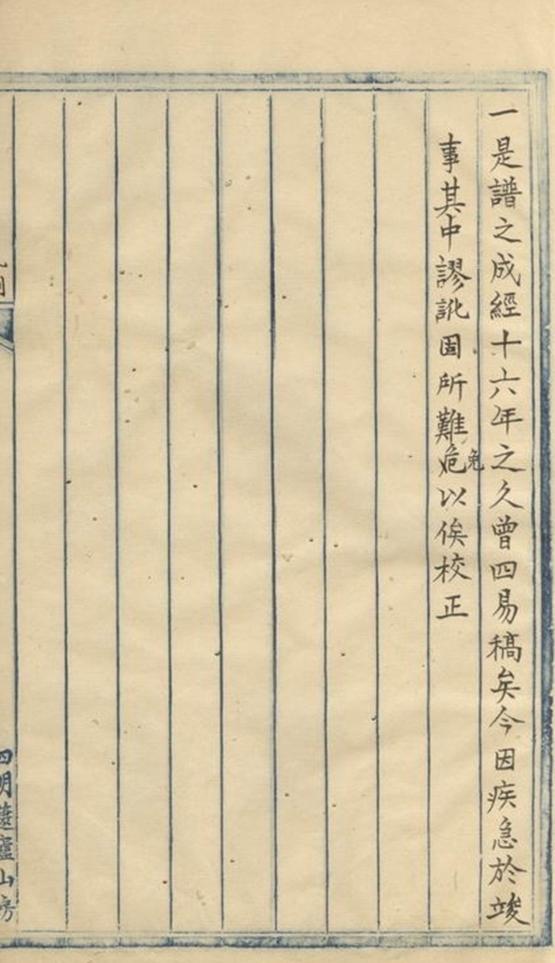 一是譜之成經十六年之久曾四易稿矣今因疾急於竣
事其中謬訛固所難危免以俟校正
四明薳廬山房